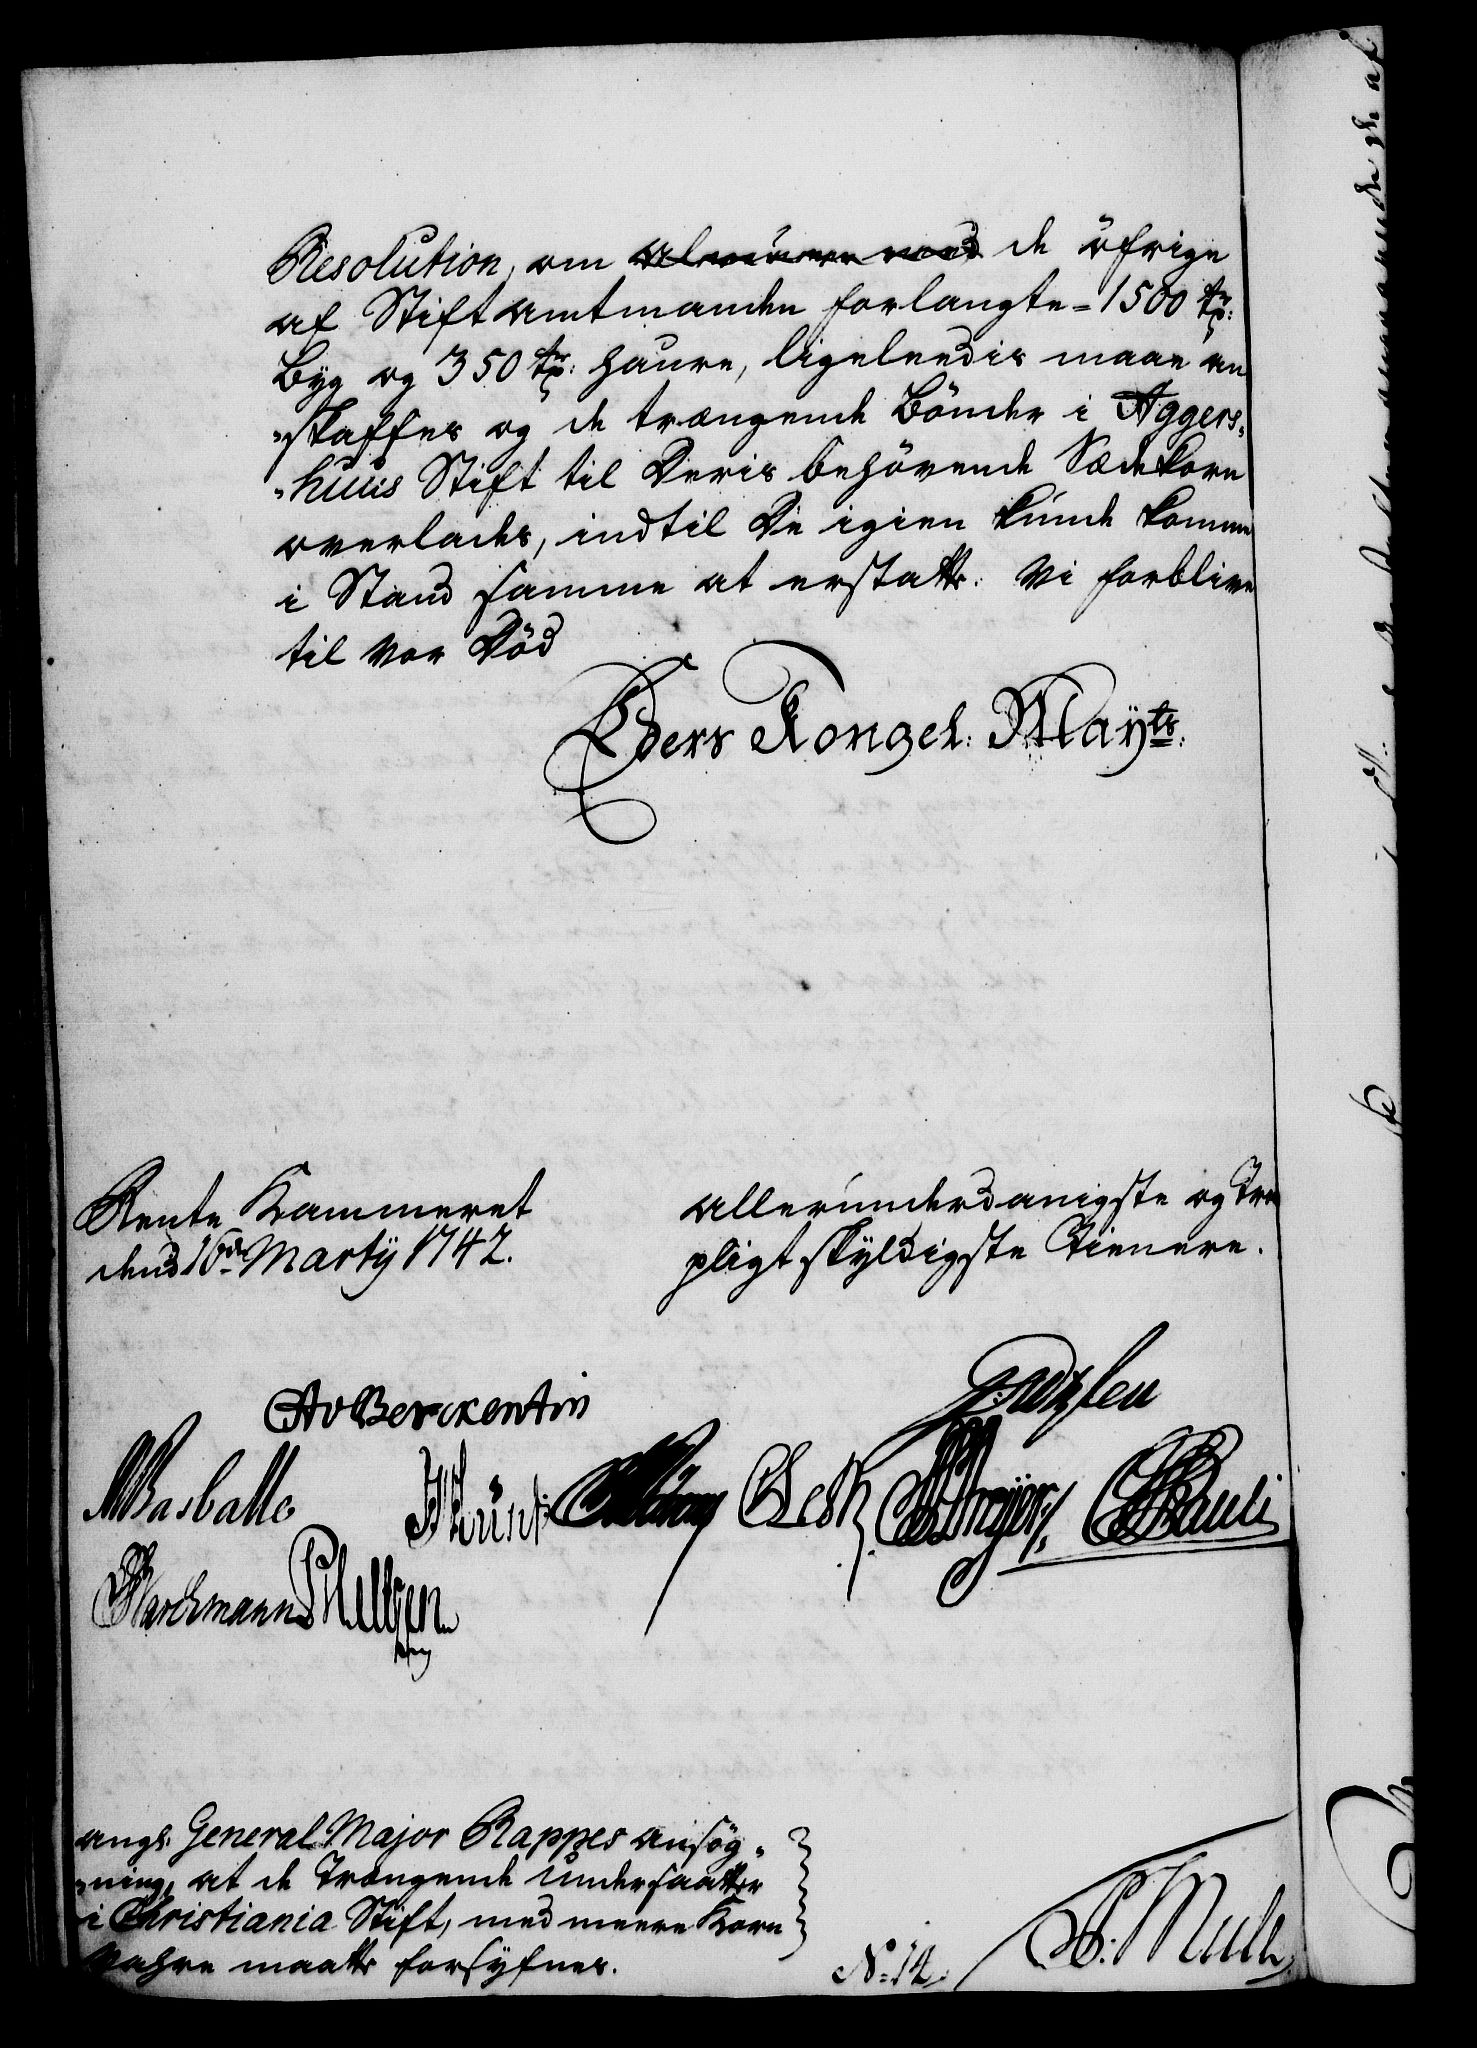 Resolution, om de öfrige
af Stiftamtmanden forlangte = 1500 tr:
Byg og 350 tr: Haure, ligeleedis maae an
skaffes og de trængende Bönder i Aggers„
„huus Stift til Deris behövende Sædekorn
overlades, indtil De igien kunde komme
i Stand samme at erstatte. Vi forblive
til vor Död
Eders Kongel: Mayts:
Rente Kammeret
dend 16de Martÿ 1742.
allerunderdanigste og Troe
pligtskÿldigste Tienere.
CAvBerckentin
Barchmann
angl: General Major Rappes ansög„
„ning, at de Trængende Undersaatter
i Christiania Stift, med meere Korn
Vahre maatte forsÿfnes.
N: 14.